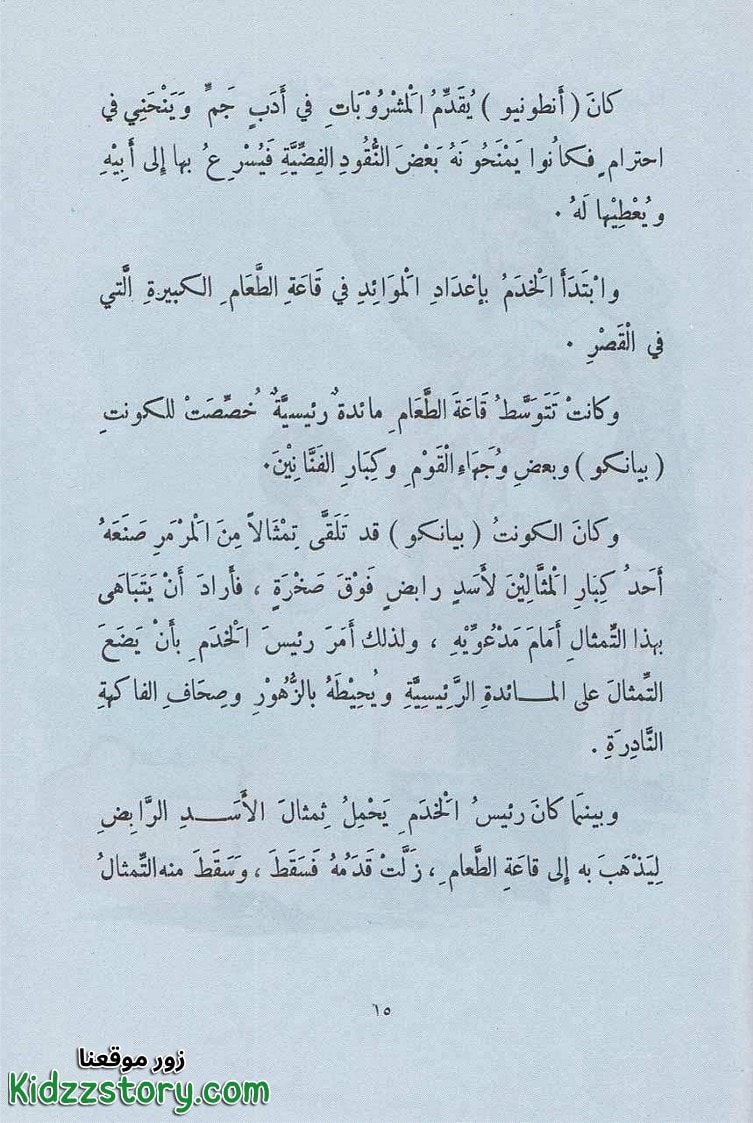 كانَ ( أَنطونيو ) يُقَدِّمُ الْمَشْرُوْبَاتِ في أَدَبٍ جَمٍّ وَيَنْحَنِي في
احترامٍ فكانُوا يَمْنَحُونَهُ بَعْضَ النُّقُودِ الفِضِّيَّةِ فَيُسْرِعُ بها إلى أَبِيْهِ
ويُعْطِيْها لَهُ .
وابْتَدَأَ الْخَدَمُ بإعْدَادِ الْموَائِدِ في قَاعَةِ الطَّعَامِ الكبيرةِ الَّتي
في الْقَصْرِ .
وكانتْ تَتَوَسَّطُ قَاعَةَ الطَّعَامِ مائدةٌ رئيسيَّةٌ خُصِّصَتْ للكونتِ
( بيانكو ) وبعضِ وُجَهَاءِ الْقَوْمِ وكِبَارِ الفَنَّانِيْنَ .
وكانَ الكونتُ ( بيانكو ) قد تَلَقَّى تِمْثَالاً مِنَ الْمَرْمَرِ صَنَعَهُ
أَحَدُ كِبَارِ الْمثَّالِيْنَ لأَسَدٍ رابضٍ فَوْقَ صَخْرَةٍ ، فأَرادَ أَنْ يَتَبَاهَى
بهذا التِّمثالِ أَمَامَ مَدْعُوِّيْهِ ، ولذلك أَمَرَ رئيسَ الْخدَمِ بأَنْ يَضَعَ
التِّمثالَ على المائدةِ الرَّئِيسِيَّةِ ويُحِيْطَهُ بالزُّهُوْرِ وصِحَافِ الفاكهةِ
النَّادِرَةِ .
وبينما كانَ رئيسُ الْخدَمِ يَحْمِلُ تِمثالَ الأَسَدِ الرَّابضِ
لِيَذْهَبَ به إلى قاعَةِ الطَّعامِ ، زَلَّتْ قَدَمُهُ فَسَقَطَ ، وَسَقَطَ منه التِّمثالُ
١٥
زور موقعنا
Kidzzstory.com